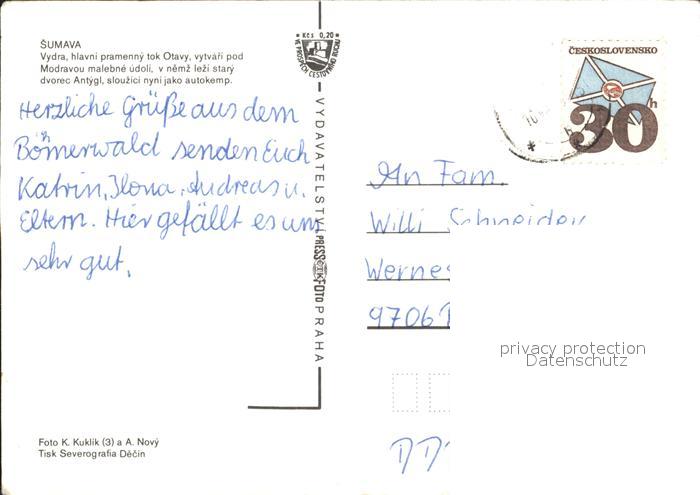 ŠUMAVA
Vydra, hlavní pramenný tok Otavy, vytváří pod
Modravou malebné údolí, v němž leží starý
dvorec Antýgl, sloužící nyní jako autokemp.
Herzliche Grüße aus dem
Böhmerwald senden Euch
Katrin, Ilona, Andreas u.
Eltern. Hier gefällt es uns
sehr gut.
Foto K. Kuklík (3) a A. Nový
Tisk Severografia Děčín
Kčs 0,20
VE PROSPĚCH CESTOVNÍHO RUCHU
VYDAVATELSTVÍ PRESSFOTO PRAHA
ČESKOSLOVENSKO
30h
An Fam.
Willi Schneider
9706
privacy protection
Datenschutz
DD